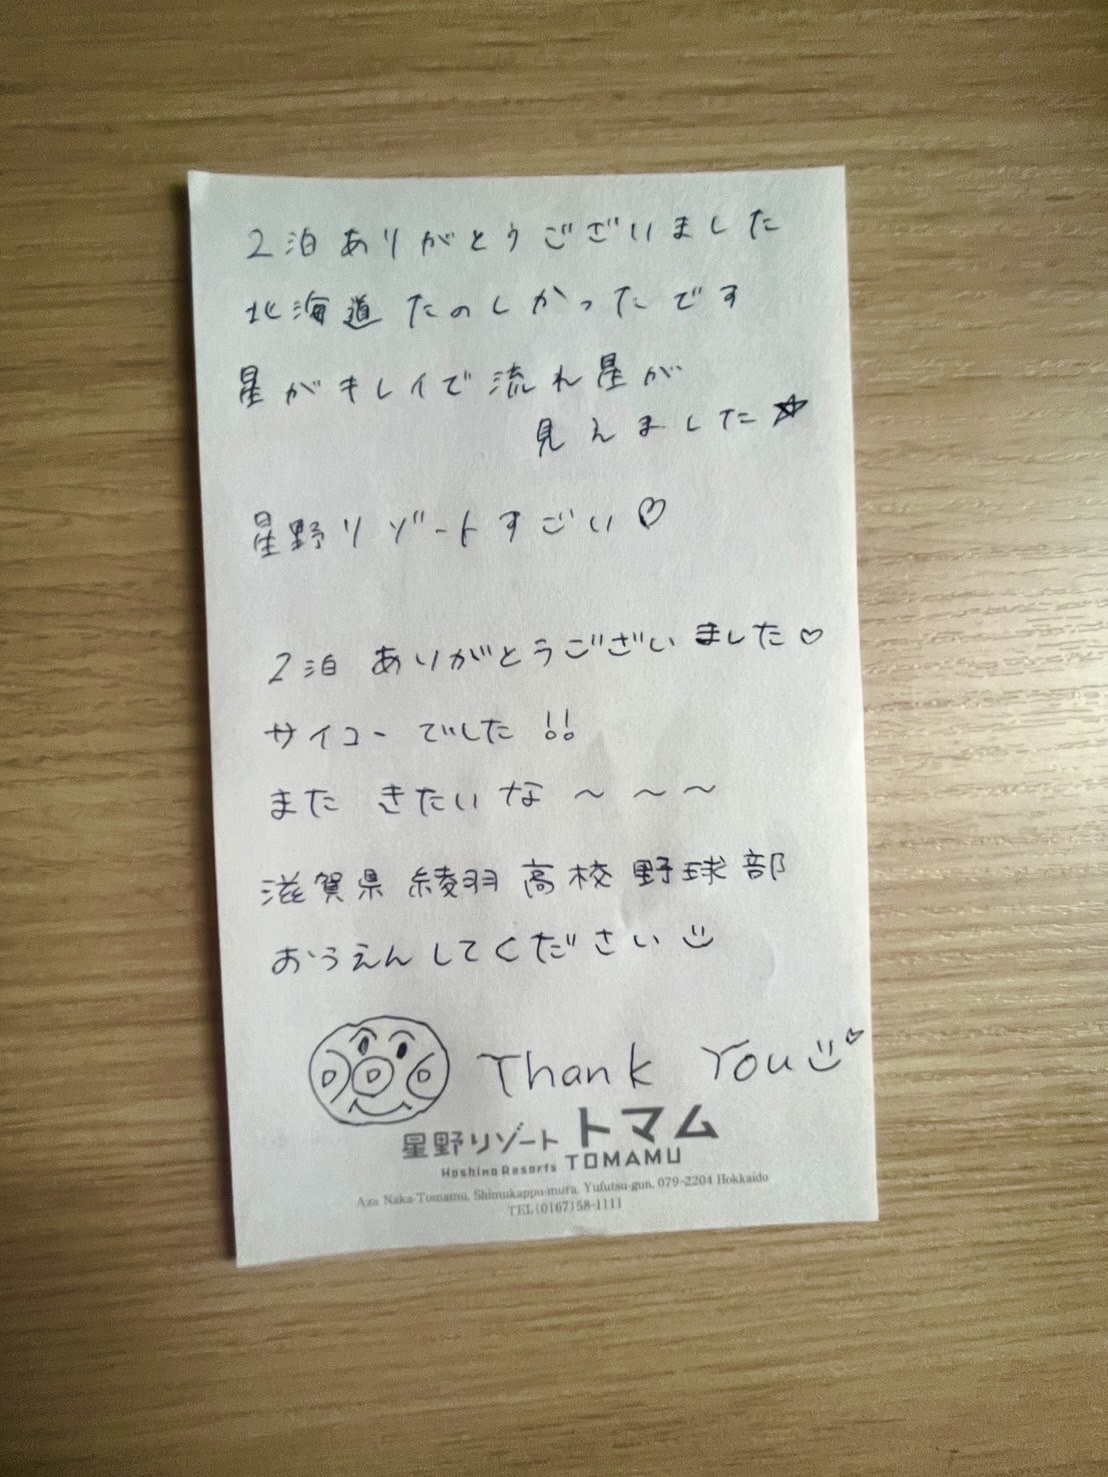 2泊ありがとうございました
北海道たのしかったです
星がキレイで流れ星が
見えました☆
星野リゾートすごい♡
2泊 ありがとうございました♡
サイコーでした!!
また きたいな～～～
滋賀県 綾羽高校野球部
おうえんしてください
Thank You
星野リゾート トマム
Hoshino Resorts TOMAMU
Aza Naka-Tomamu, Shimukappu-mura, Yufutsu-gun, 079-2204 Hokkaido
TEL(0167)58-1111